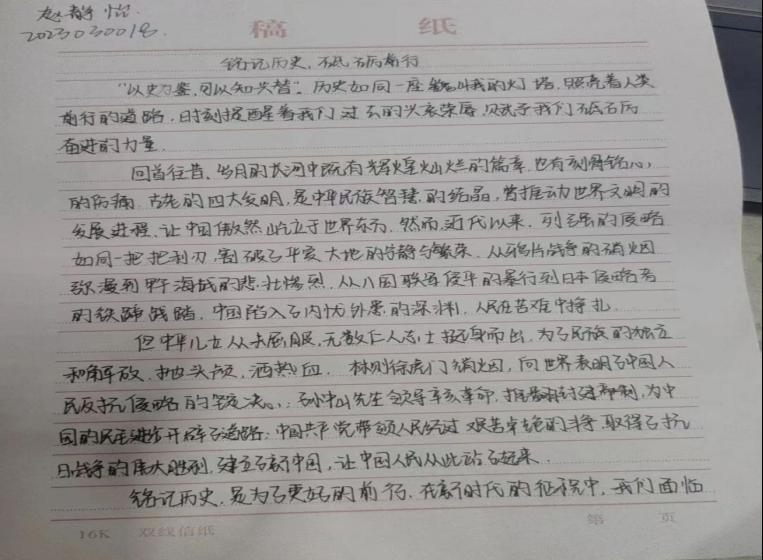 赵静怡
2023030018
稿 纸
铭记历史，砥砺前行
“以史为鉴，可以知兴替”。历史如同一座的灯塔，照亮着人类
前行的道路，时刻提醒着我们过去的兴衰荣辱，赋予我们砥砺
奋进的力量.
回首往昔，岁月的长河中既有辉煌灿烂的篇章，也有刻骨铭心，
的伤痛. 古老的四大发明，是中华民族智慧的结晶，曾推动世界文明的
发展进程，让中国傲然屹立于世界东方. 然而，近代以来，列强的侵略
如同一把把利刃，割破了华夏大地的宁静与繁荣. 从鸦片战争的硝烟
弥漫到甲午海战的悲壮惨烈，从八国联军侵华的暴行到日本侵略者
的铁蹄践踏，中国陷入了内忧外患的深渊，人民在苦难中挣扎.
但中华儿女从未屈服，无数仁人志士挺身而出，为了民族的独立
和解放，抛头颅，洒热血. 林则徐虎门销烟，向世界表明了中国人
民反抗侵略的坚决。；孙中山先生领导辛亥革命，推翻封建帝制，为中
国的民主进步开辟了道路；中国共产党带领人民经过艰苦卓绝的斗争，取得了抗
日战争的伟大胜利，建立了新中国，让中国人民从此站了起来.
铭记历史，是为了更好的前行. 在新时代的征程中，我们面临
16K 双线信纸 第 页